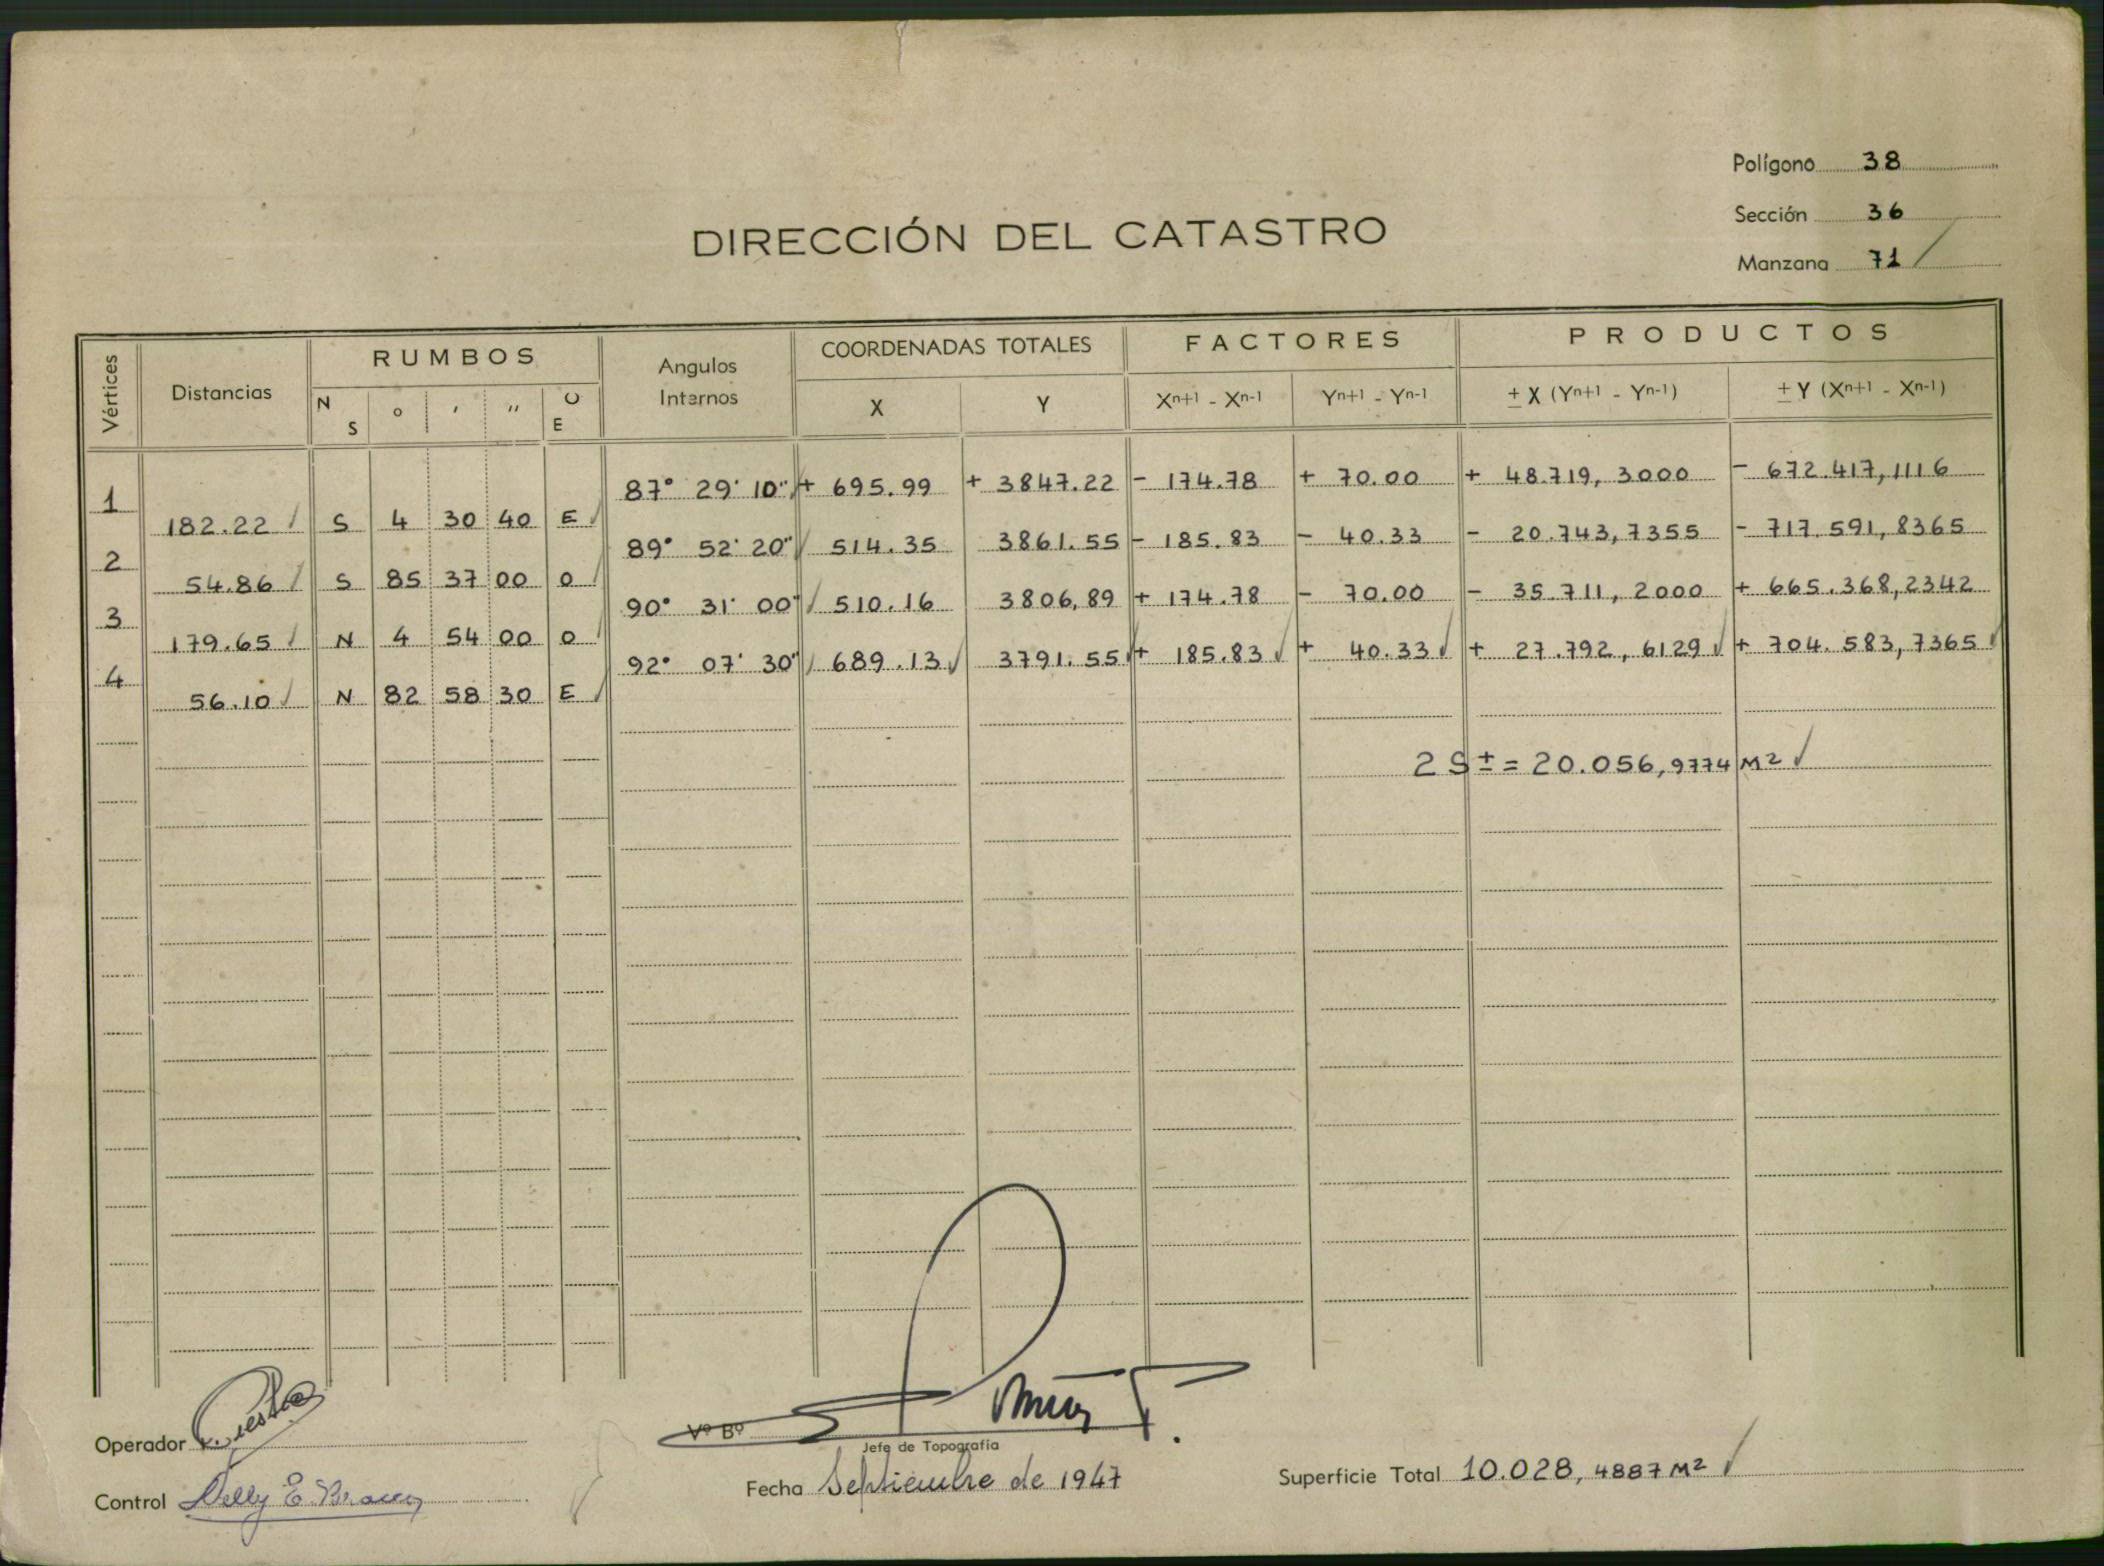 Polígono 38
Sección 36
Manzana 71
DIRECCIÓN DEL CATASTRO
Vértices Distancias RUMBOS Angulos Internos COORDENADAS TOTALES FACTORES PRODUCTOS
N S ° ' " O E X Y Xn+1 - Xn-1 Yn+1 - Yn-1 ± X (Yn+1 - Yn-1) ± Y (Xn+1 - Xn-1)
1 87° 29' 10" + 695.99 + 3847.22 - 174.78 + 70.00 + 48.719,3000 - 672.417,1116
182.22 S 4 30 40 E
2 89° 52' 20" 514.35 3861.55 - 185.83 - 40.33 - 20.743,7355 - 717.591,8365
54.86 S 85 37 00 O
3 90° 31' 00" 510.16 3806,89 + 174.78 - 70.00 - 35.711,2000 + 665.368,2342
179.65 N 4 54 00 O
4 92° 07' 30" 689.13 3791.55 + 185.83 + 40.33 + 27.792,6129 + 704.583,7365
56.10 N 82 58 30 E
2 S ± = 20.056,9774 M²
Operador
Vº Bº
Jefe de Topografía
Control Nelly E.
Fecha Septiembre de 1947
Superficie Total 10.028,4887 M²